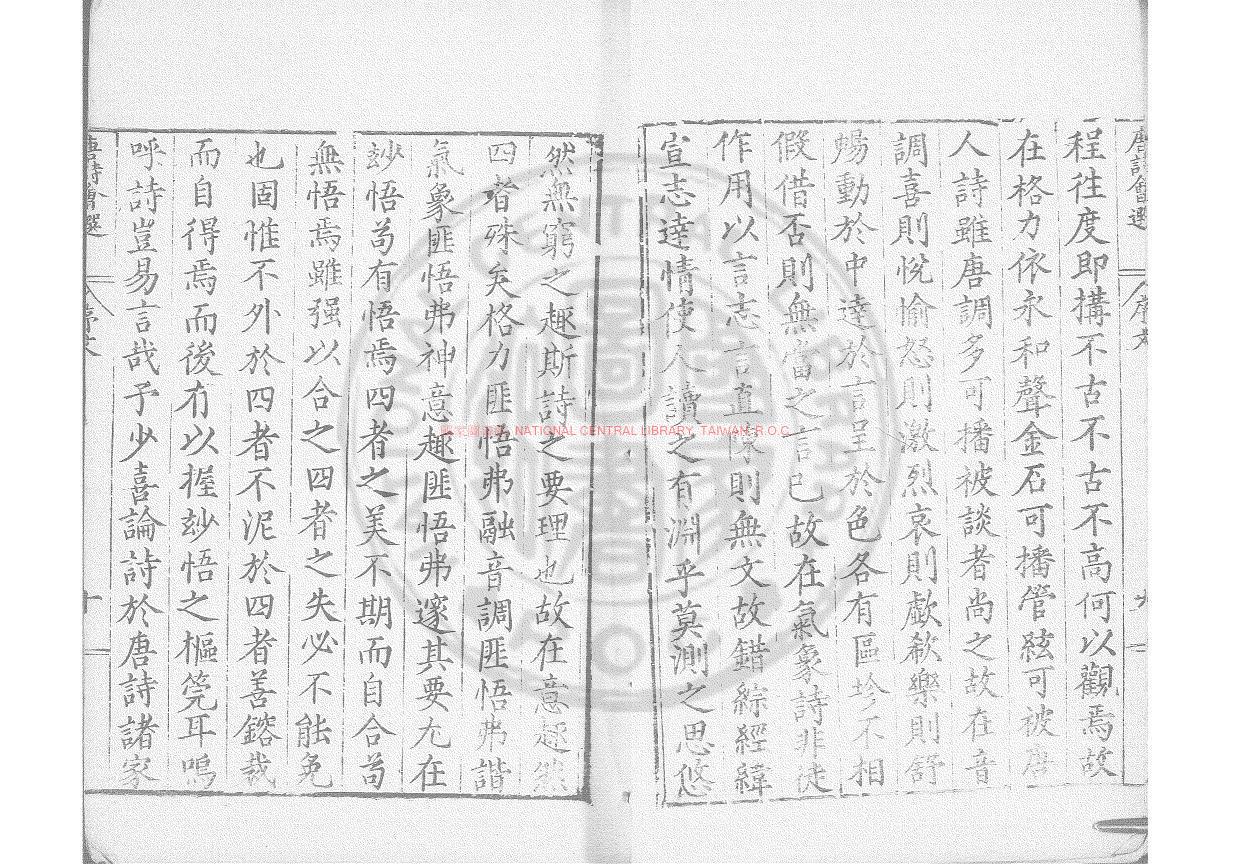 唐詩會選 序文 九
程徃度即搆不古不古不高何以觀焉故
在格力依永和聲金石可播管絃可被唐
人詩雖唐調多可播被談者尚之故在音
調喜則悅愉怒則激烈哀則歔欷樂則舒
暢動於中達於言呈於色各有區畛不相
假借否則無當之言已故在氣象詩非徒
作用以言志言直陳則無文故錯綜經緯
宣志達情使人讀之有淵乎莫測之思悠
然無窮之趣斯詩之要理也故在意趣然
四者殊矣格力匪悟弗融音調匪悟弗諧
氣象匪悟弗神意趣匪悟弗邃其要尤在
玅悟苟有悟焉四者之美不期而自合苟
無悟焉雖强以合之四者之失必不能免
也固惟不外於四者不泥於四者善鎔裁
而自得焉而後有以握玅悟之樞筦耳嗚
呼詩豈易言哉予少喜論詩於唐詩諸家
唐詩會選 序文 十
國家圖書館 NATIONAL CENTRAL LIBRARY, TAIWAN, R.O.C.